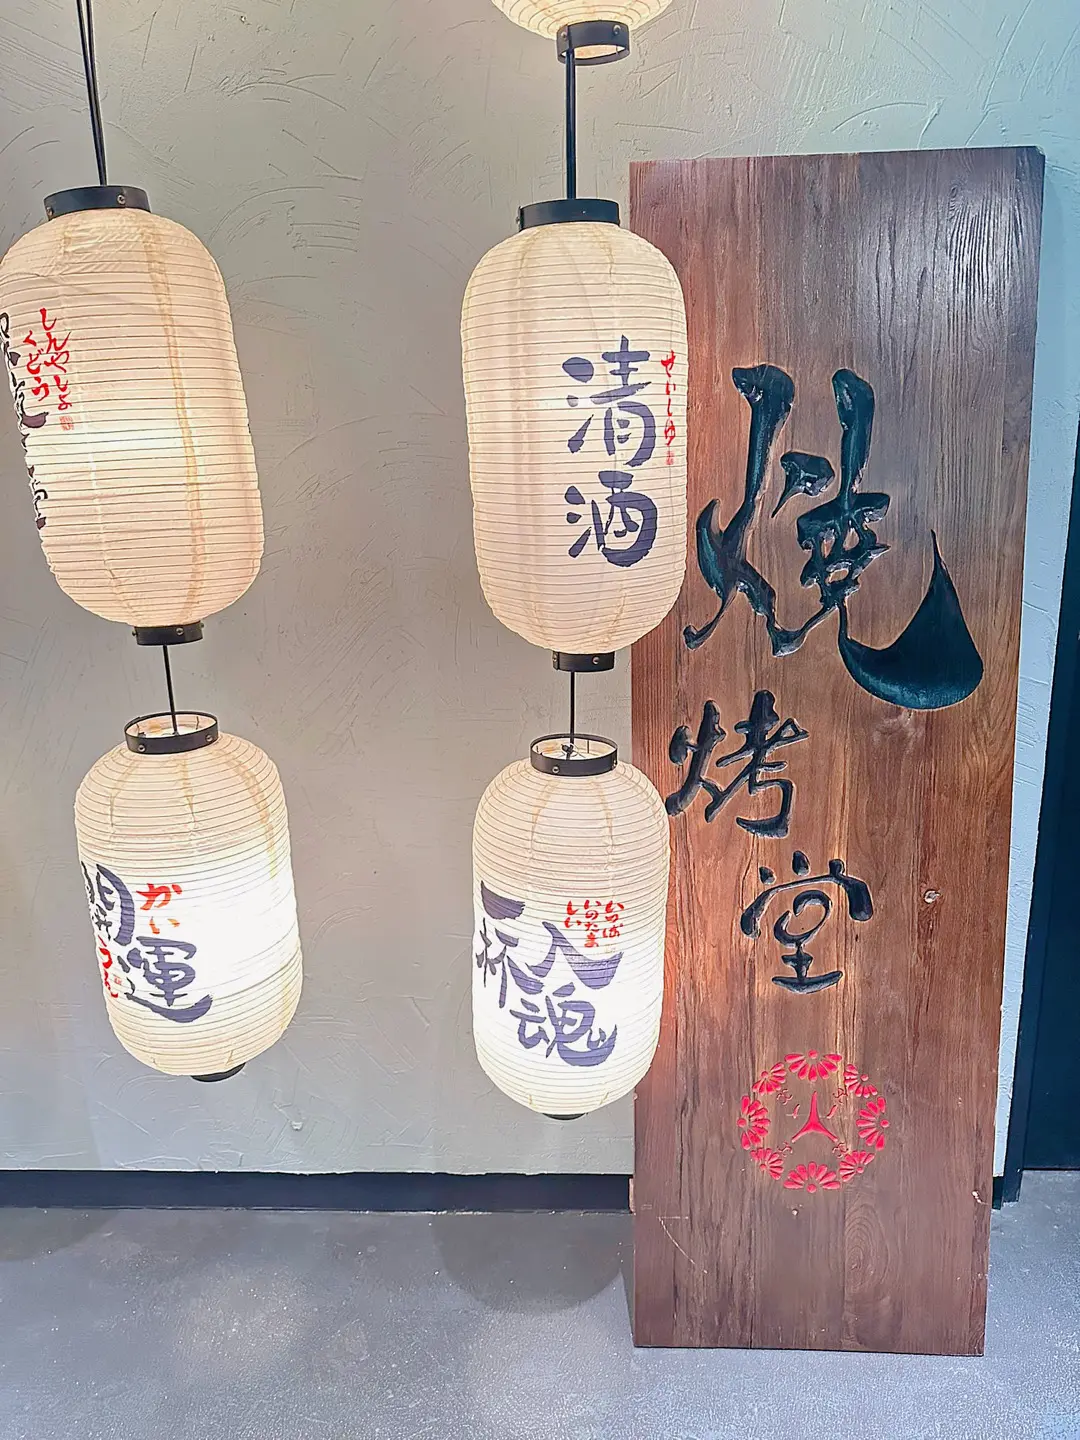 しんやしょ
くどう
清酒
せいしゅ
燒
烤
堂
開運
かい
うん
一杯
入魂
いっぱ
いのたま
しい